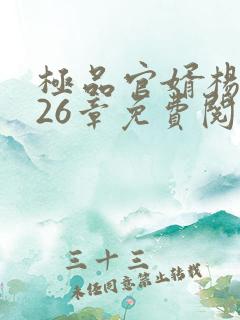 極品官婿楊
26章免費閱
三十三
未经同意禁止转载